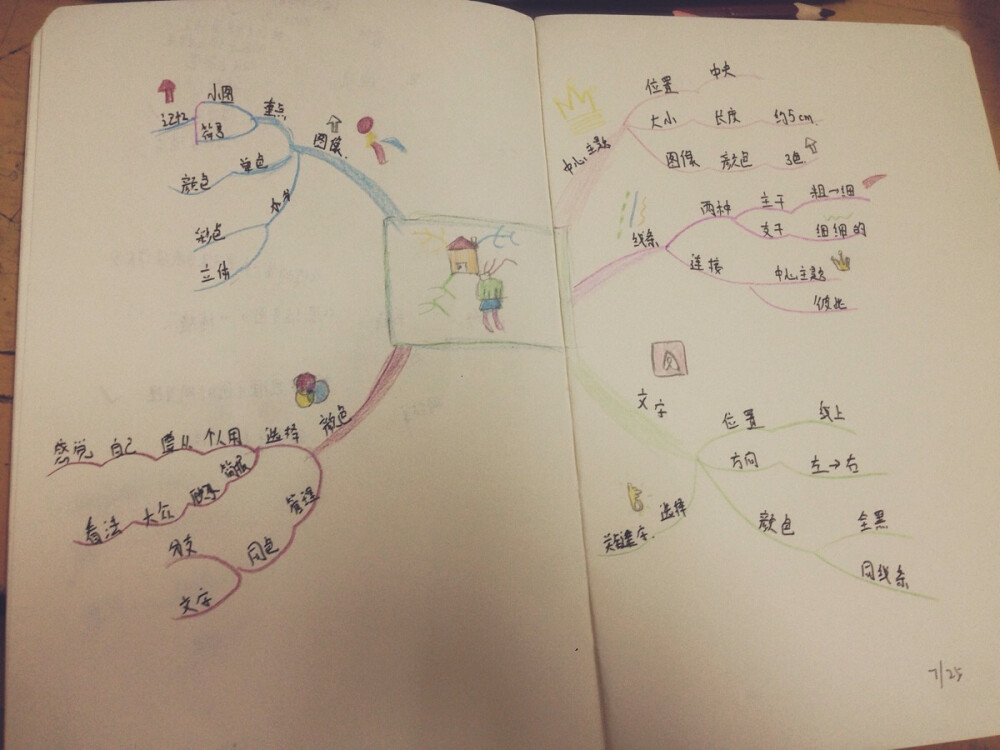 中心主题
位置 中央
大小 长度 约5cm
图像 颜色 3色
线条
两种 主干 粗→细
支干 细细的
连接 中心主题
彼此
文字
位置 线上
方向 左→右
颜色 全黑
同线条
选择
关键字
颜色
选择 个人用 遵从 自己 感觉
大众 看法
管理
同色 分支
文字
图像
重点 小图
符号
记忆
单色 颜色
彩色
立体
7/25